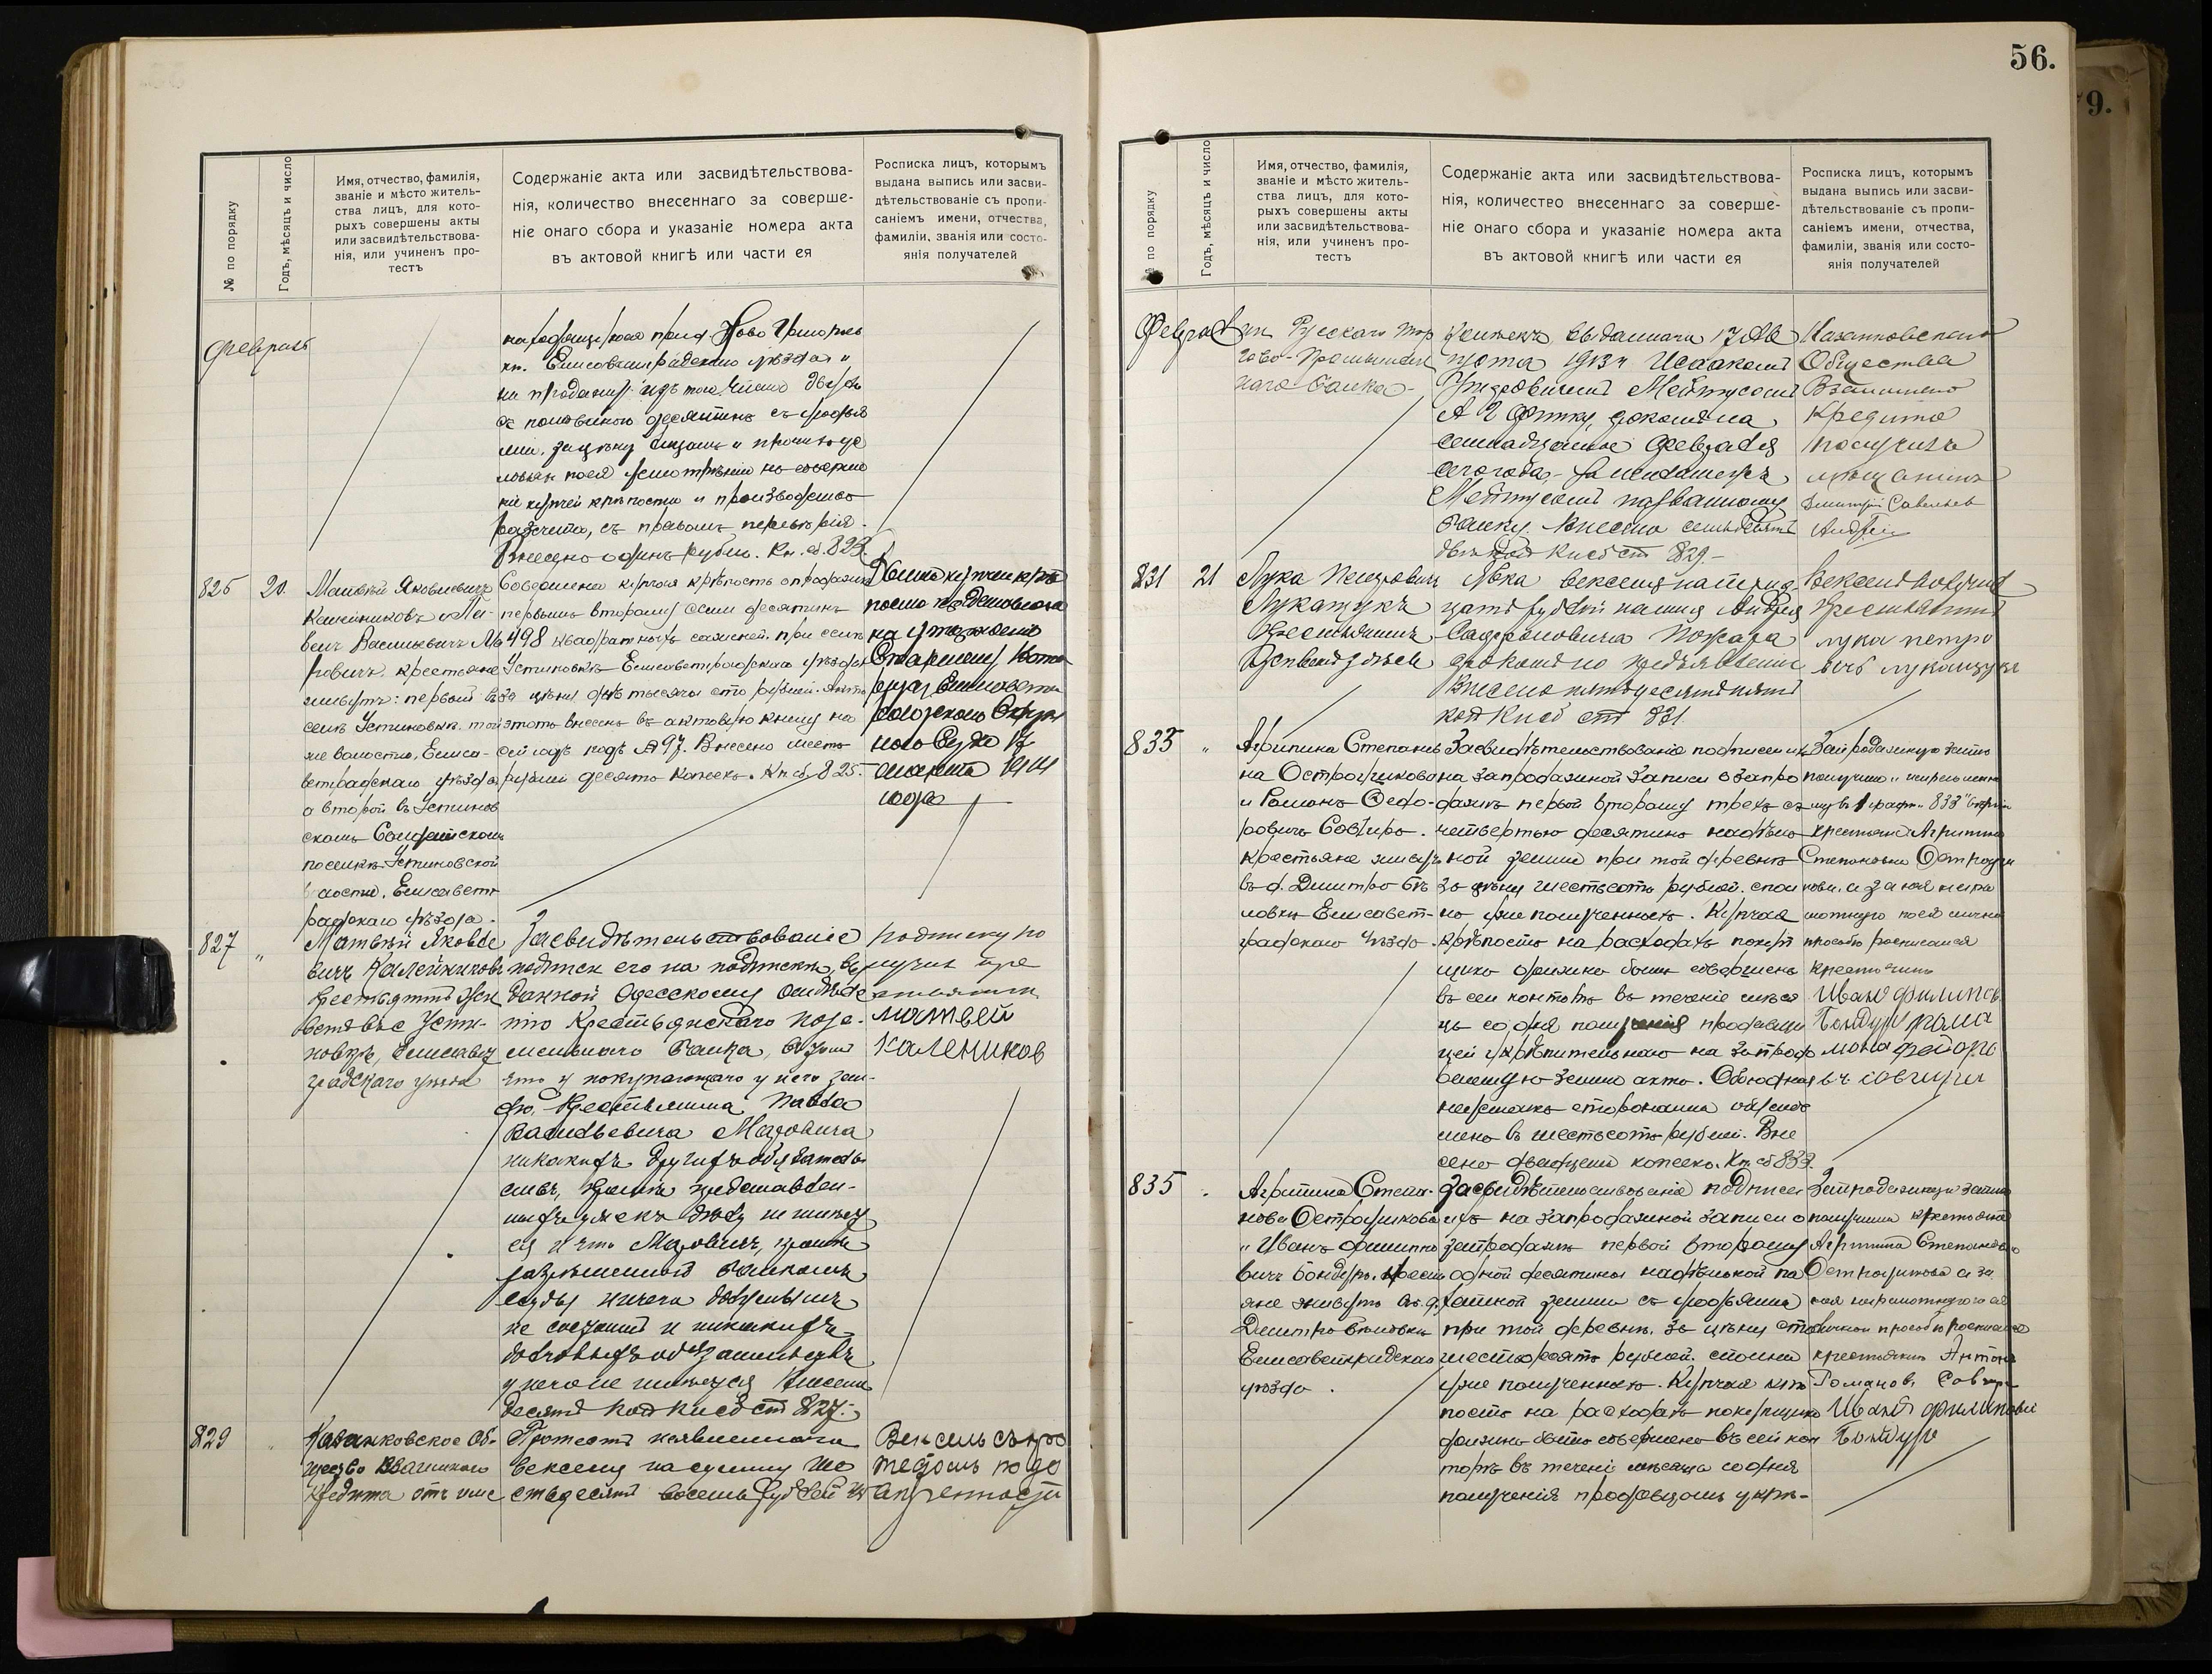 56.
9.
№ по порядку
Годъ, мѣсяцъ и число
Имя, отчество, фамилія,
званіе и мѣсто житель-
ства лицъ, для кото-
рыхъ совершены акты
или засвидѣтельствова-
нія, или учиненъ про-
тестъ
Содержаніе акта или засвидѣтельствова-
нія, количество внесеннаго за соверше-
ніе онаго сбора и указаніе номера акта
въ актовой книгѣ или части ея
Росписка лицъ, которымъ
выдана выпись или засви-
дѣтельствованіе съ пропи-
саніемъ имени, отчества,
фамиліи, званія или состо-
янія получателей
февраль
находящейся при д. Ново
Елисаветградскаго уѣзда и
на продажу изъ той земли двухъ
съ половиною десятинъ съ
цѣну
совершеніе
купчей крѣпости и производство
разсчета, съ правомъ передовѣрія.
Внесено одинъ рубль. Кн. сб. 823.
825
20.
Матвѣй Яковлевичъ
Калейниковъ и
Васильевичъ
крестьяне
живутъ: первый въ
селѣ Устиновкѣ той
же волости, Елиса-
ветградскаго уѣзда,
а второй въ Устинов
скомъ
поселкѣ Устиновской
волости, Елисавет
градскаго уѣзда.
Совершена купчая крѣпость о продажѣ
первымъ второму семи десятинъ
498 квадратныхъ саженей при селѣ
Устиновкѣ Елисаветградскаго уѣзда
за цѣну двѣ тысячи сто рублей. Актъ
этотъ внесенъ въ актовую книгу на
сей годъ подъ № 97. Внесено шесть
рублей десять копеекъ. Кн. сб. 825.
на утвержденіе
Старшему Нота
ріусу Елисавет
градскаго Окруж
наго Суда 17
марта 1914
года
827
"
Матвѣй Яковле
вичъ Калейниковъ
крестьянинъ жи
ветъ въ с. Усти-
новкѣ, Елисавет
градскаго уѣзда
Засвидѣтельствованіе
подписи его на подпискѣ, вы
данной Одесскому отдѣле
нію Крестьянскаго Позе-
мельнаго Банка, въ томъ
что у покупающаго у него зем-
лю, крестьянина Павла
Васильевича Мазовича
никакихъ другихъ обязатель
ствъ, кромѣ представлен-
ныхъ уже къ дѣлу не имеет
ся и что Мазовичъ, кромѣ
разрѣшенной Банкомъ
ссуды ничего должнымъ
не состоитъ и никакихъ
долговыхъ обязательствъ
у него не имѣется Внесено
десять коп Кн сб ст 827.-
подписку по
лучилъ кре
стьянинъ
матвей
Калеников
829
"
Казанковское Об-
щество Взаимнаго
Кредита отъ име
Протестъ неявленнаго
векселя на сумму ше
стьдесятъ восемь рублей 24
Вексель съ про
тестомъ по до
вѣренности
№ по порядку
Годъ, мѣсяцъ и число
Имя, отчество, фамилія,
званіе и мѣсто житель-
ства лицъ, для кото-
рыхъ совершены акты
или засвидѣтельствова-
нія, или учиненъ про-
тестъ
Содержаніе акта или засвидѣтельствова-
нія, количество внесеннаго за соверше-
ніе онаго сбора и указаніе номера акта
въ актовой книгѣ или части ея
Росписка лицъ, которымъ
выдана выпись или засви-
дѣтельствованіе съ пропи-
саніемъ имени, отчества,
фамиліи, званія или состо-
янія получателей
Февраль
ни Русскаго Тор
гово-Промышлен
наго банка-
копеекъ выданнаго 17 Ав
густа 1913 г Исаакомъ
семнадцатое Февраля
сего года,
банку. Внесено семьдесятъ
двѣ коп Кн сб ст 829.-
Казанковскаго
Общества
Взаимнаго
Кредита
получилъ
мѣщанинъ
Дмитрій Савельевъ
831
21
Лука Петровичъ
Лукащукъ
Крестьянинъ
векселя на
цать рублей на имя Андрея
срокомъ по предъявленіи
Внесено пятьдесятъ пять
коп Кн сб ст 831.
Вексель получилъ
Крестьянинъ
лука петро
вичъ лукащукъ
833
"
Агрипина Степанов
на Остроушкова
и Романъ Федо-
ровичъ Совгиръ.
крестьяне живутъ
въ д. Дмитро-Бѣ
ловкѣ Елисавет-
градскаго уѣзда.
Засвидѣтельствованіе подписей ихъ
на запродажной записи о запро
дажѣ первой второму трехъ съ
четвертью десятинъ надѣль
ной земли при той деревнѣ
за цѣну шестьсотъ рублей. спол
на уже полученныхъ. Купчая
крѣпость на расходахъ покуп
щика должна быть совершена
въ сей конторѣ въ теченіе мѣся
ца со дня полученія продавщи
цей укрѣпительнаго на запрод
ваемую землю акта. Обоюдная
неустойка сторонами опредѣ
лена въ шестьсотъ рублей. Вне
сено двадцать копеекъ. Кн. сб 833.
Запродажную запись
получила
крестьянка Агрипина
Степановна Остроуш
кова, а за нея негра
мотную по ея личной
просьбѣ росписался
крестьянинъ
Иванъ филипов
Бондур рома
мона федоро
въ совгиря
835
"
Агрипина Степа-
нова Остроушкова
и Иванъ Филиппо
вичъ Бондурь. крестья
яне живутъ въ д.
Дмитро Бѣловкѣ
Елисаветградскаго
уѣзда.
Засвидѣтельствованіе подписей
ихъ на запродажной записи о
запродажѣ первой второму
одной десятины надѣльной па
хатной земли съ
при той деревнѣ. за цѣну сто
шестьдесятъ рублей. сполна
уже полученныхъ. Купчая крѣ
пость на расходахъ покупщика
должна быть совершена въ сей кон
торѣ въ теченіе мѣсяца со дня
полученія продавцомъ укрѣ-
Запродажную запись
получила крестьянка
Агрипина Степановна
Остроушкова а за
нея неграмотную по ея
личной просьбѣ росписался
крестьянинъ Антонъ
Романовъ Совгиръ
Иванъ филипович
Бондур